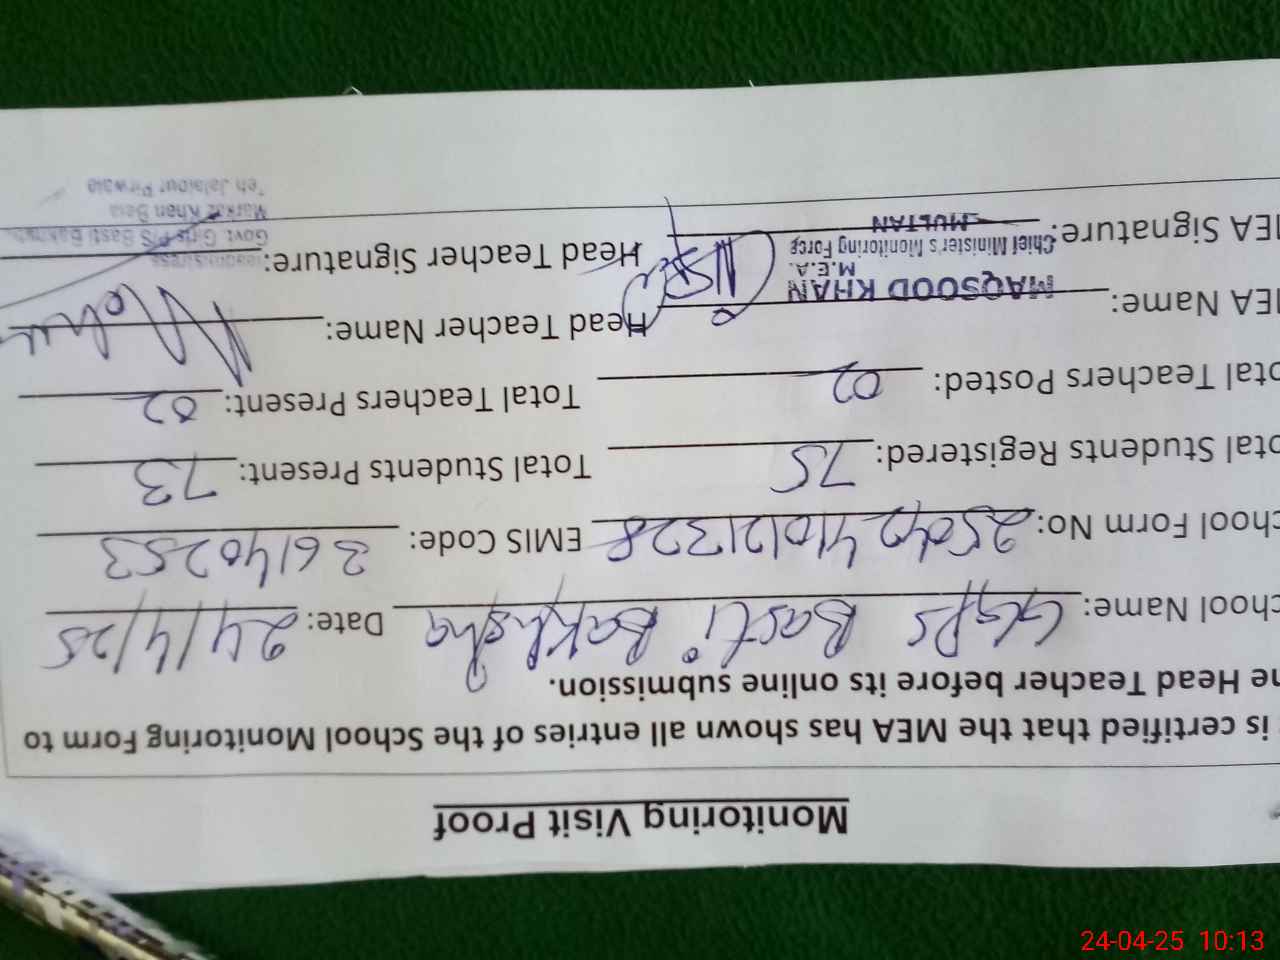 Monitoring Visit Proof
is certified that the MEA has shown all entries of the School Monitoring Form to
he Head Teacher before its online submission.
chool Name: GGPS Basti Bakhsha Date: 24/4/25
chool Form No: EMIS Code: 36140253
otal Students Registered: 75 Total Students Present: 73
otal Teachers Posted: 02 Total Teachers Present: 02
MEA Name: MAQSOOD KHAN Head Teacher Name:
M.E.A.
Chief Minister's Monitoring Force
MULTAN
MEA Signature: Head Teacher Signature:
Headmistress
Govt. Girls P/S Basti
Markaz Khan Bela
Teh Jalalpur Pirwala
24-04-25 10:13